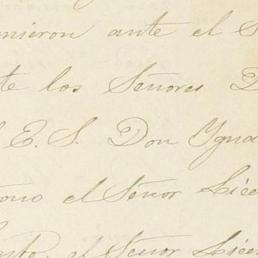 nieron ante el S
te los Señores D
l E. S. Don Igna
ono el Señor Lice
el Señor Lice